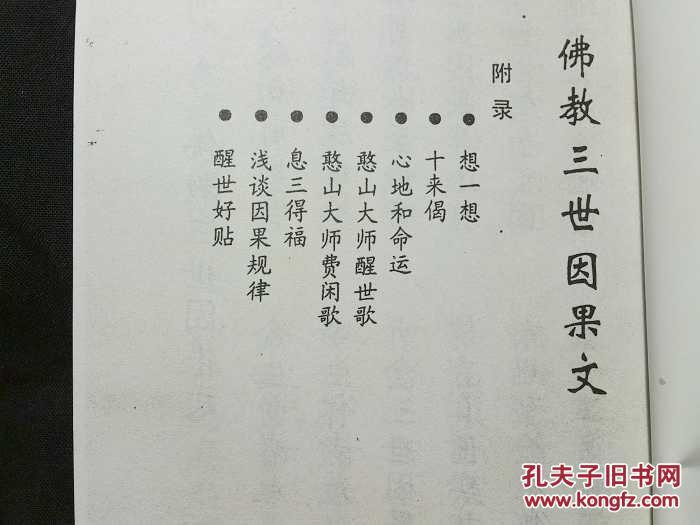 佛教三世因果文
附录
●想一想
●十来偈
●心地和命运
●憨山大师醒世歌
●憨山大师费闲歌
●息三得福
●浅谈因果规律
●醒世好贴
孔夫子旧书网
www.kongfz.com